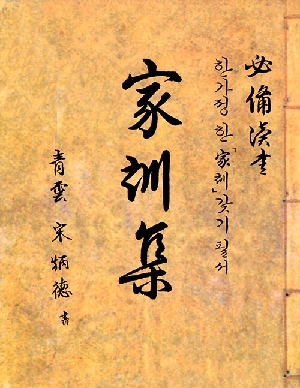 必備漢書
한 가정 한「家訓」갖기 필서
家訓集
青雲 宋炳德 書